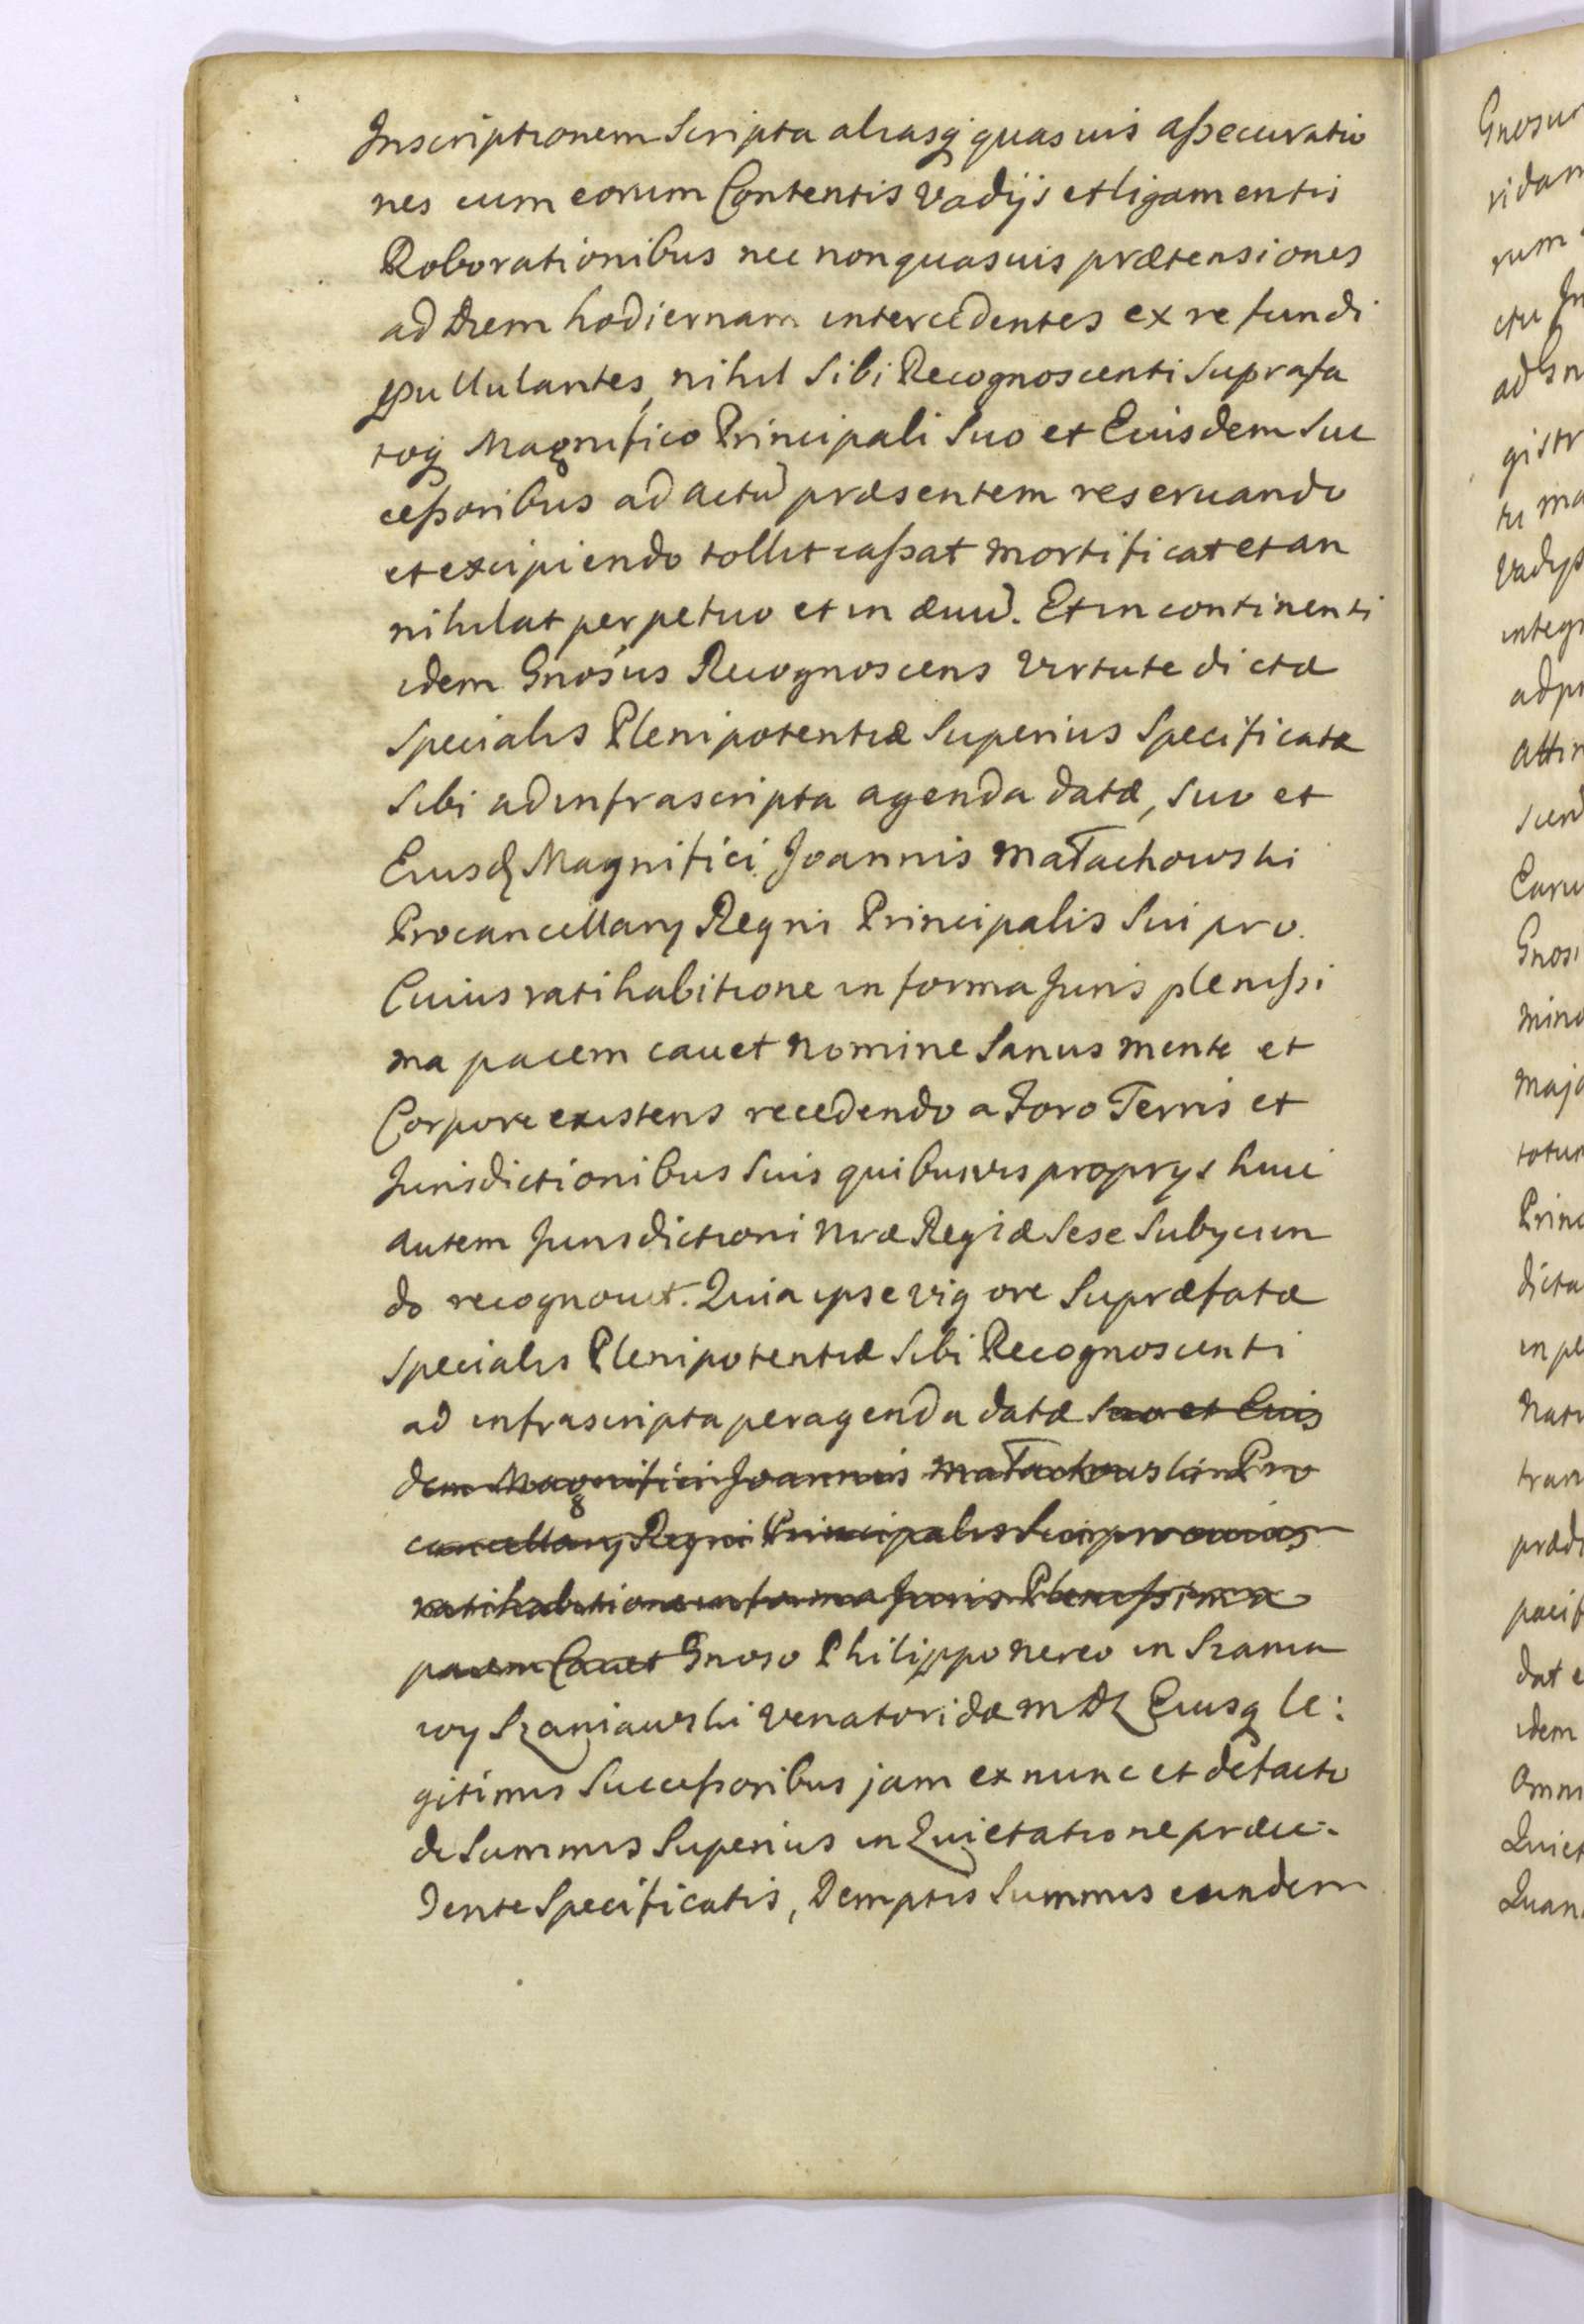 Inscriptionem Scripta aliasq quasuis assecuratio
nes cum eorum Contentis Vadijs et ligamentis
Roborationibus nec non quasuis prætensiones
ad diem hodiernam intercedentes ex re fundi
pullulantes, nihil Sibi Recognoscenti Suprafa
toq Magnifico Principali Suo et Eiusdem Suc
cessoribus ad actũ præsentem reseruando
et excipiendo tollit cassat mortificat et an
nihilat perpetuo et in æuũ. Et in continenti
idem Gnosus Recognoscens Virtute dictæ
Specialis Plenipotentiæ Superius Specificatæ
Sibi ad infrascripta agenda datæ, Suo et
Eiusd Magnifici Joannis Małachowski
Procancellarÿ Regni Principalis Sui pro
Cuius ratihabitione in forma Juris plenissi
ma pacem cauet nomine Sanus mente et
Corpore existens recedendo a Foro Terris et
Jurisdictionibus Suis quibusvis proprÿs huic
autem Jurisdictioni nræ Regiæ Sese Subÿcien
do recognouit. Quia ipse vigore Supræfatæ
Specialis Plenipotentiæ Sibi Recognoscenti
ad infrascripta peragenda datæ Suo et Eius
dem Magnifici Joannis Małachowski Pro
cancellarÿ Regni Principalis Sui pro cuius
ratihabitione in forma Juris Plenissima
pacem Cauet Gnoso Philippo Nereo in Szania
wy Szaniawski Venatoridæ M D L Eiusq le:
gitimis Successoribus jam ex nunc et de facto
de Summis Superius in Quietatione præce:
dente Specificatis, Demptis Summis eundem
Gnosu
ridam
rum
ctu In
ad Gn
gistr
tu ma
Vadÿs
integr
ad pr
Attin
scend
Earu
Gnosi
mino
majo
totum
Princ
dicta
in pl
Natu
tran
prædi
pacif
dat e
idem
Omni
Quiet
Quan